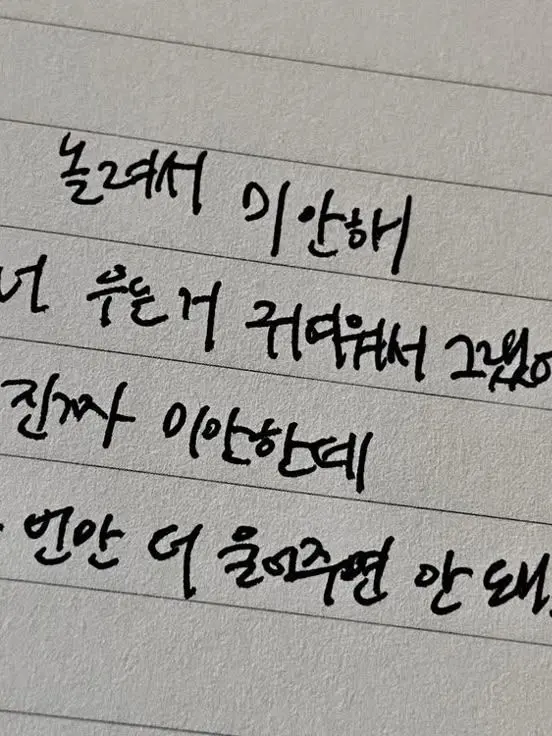 놀려서 미안해
너 우는 거 귀여워서 그랬어
진짜 미안한데
번만 더 울어주면 안 돼